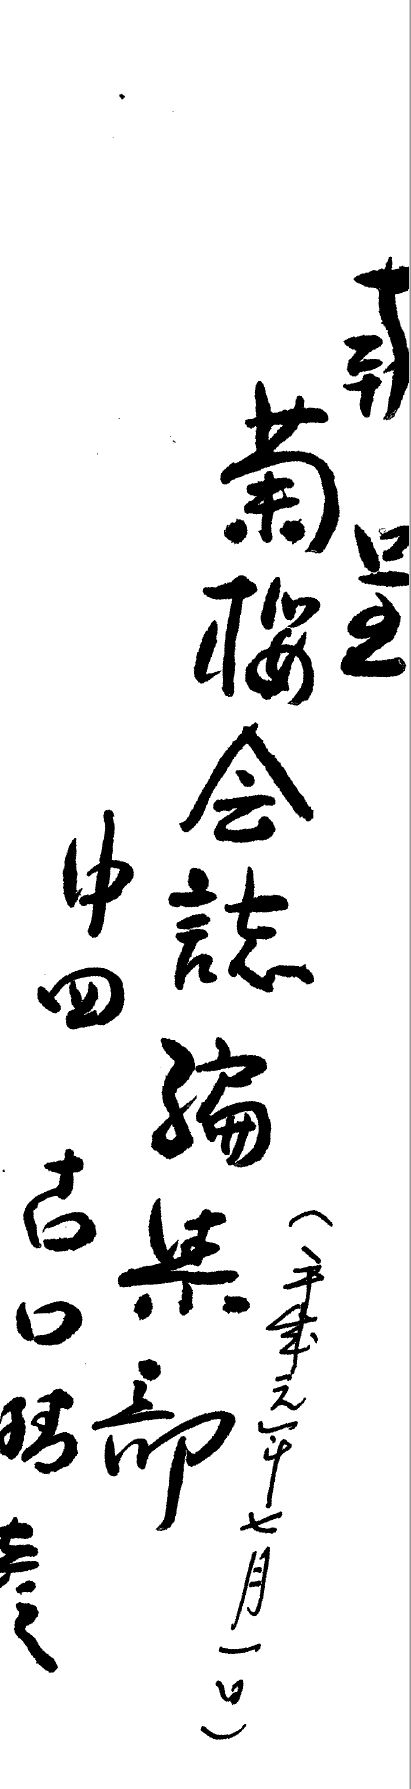 呈
(平成元年七月一日)
菊桜会誌編集部
中四 古口晴